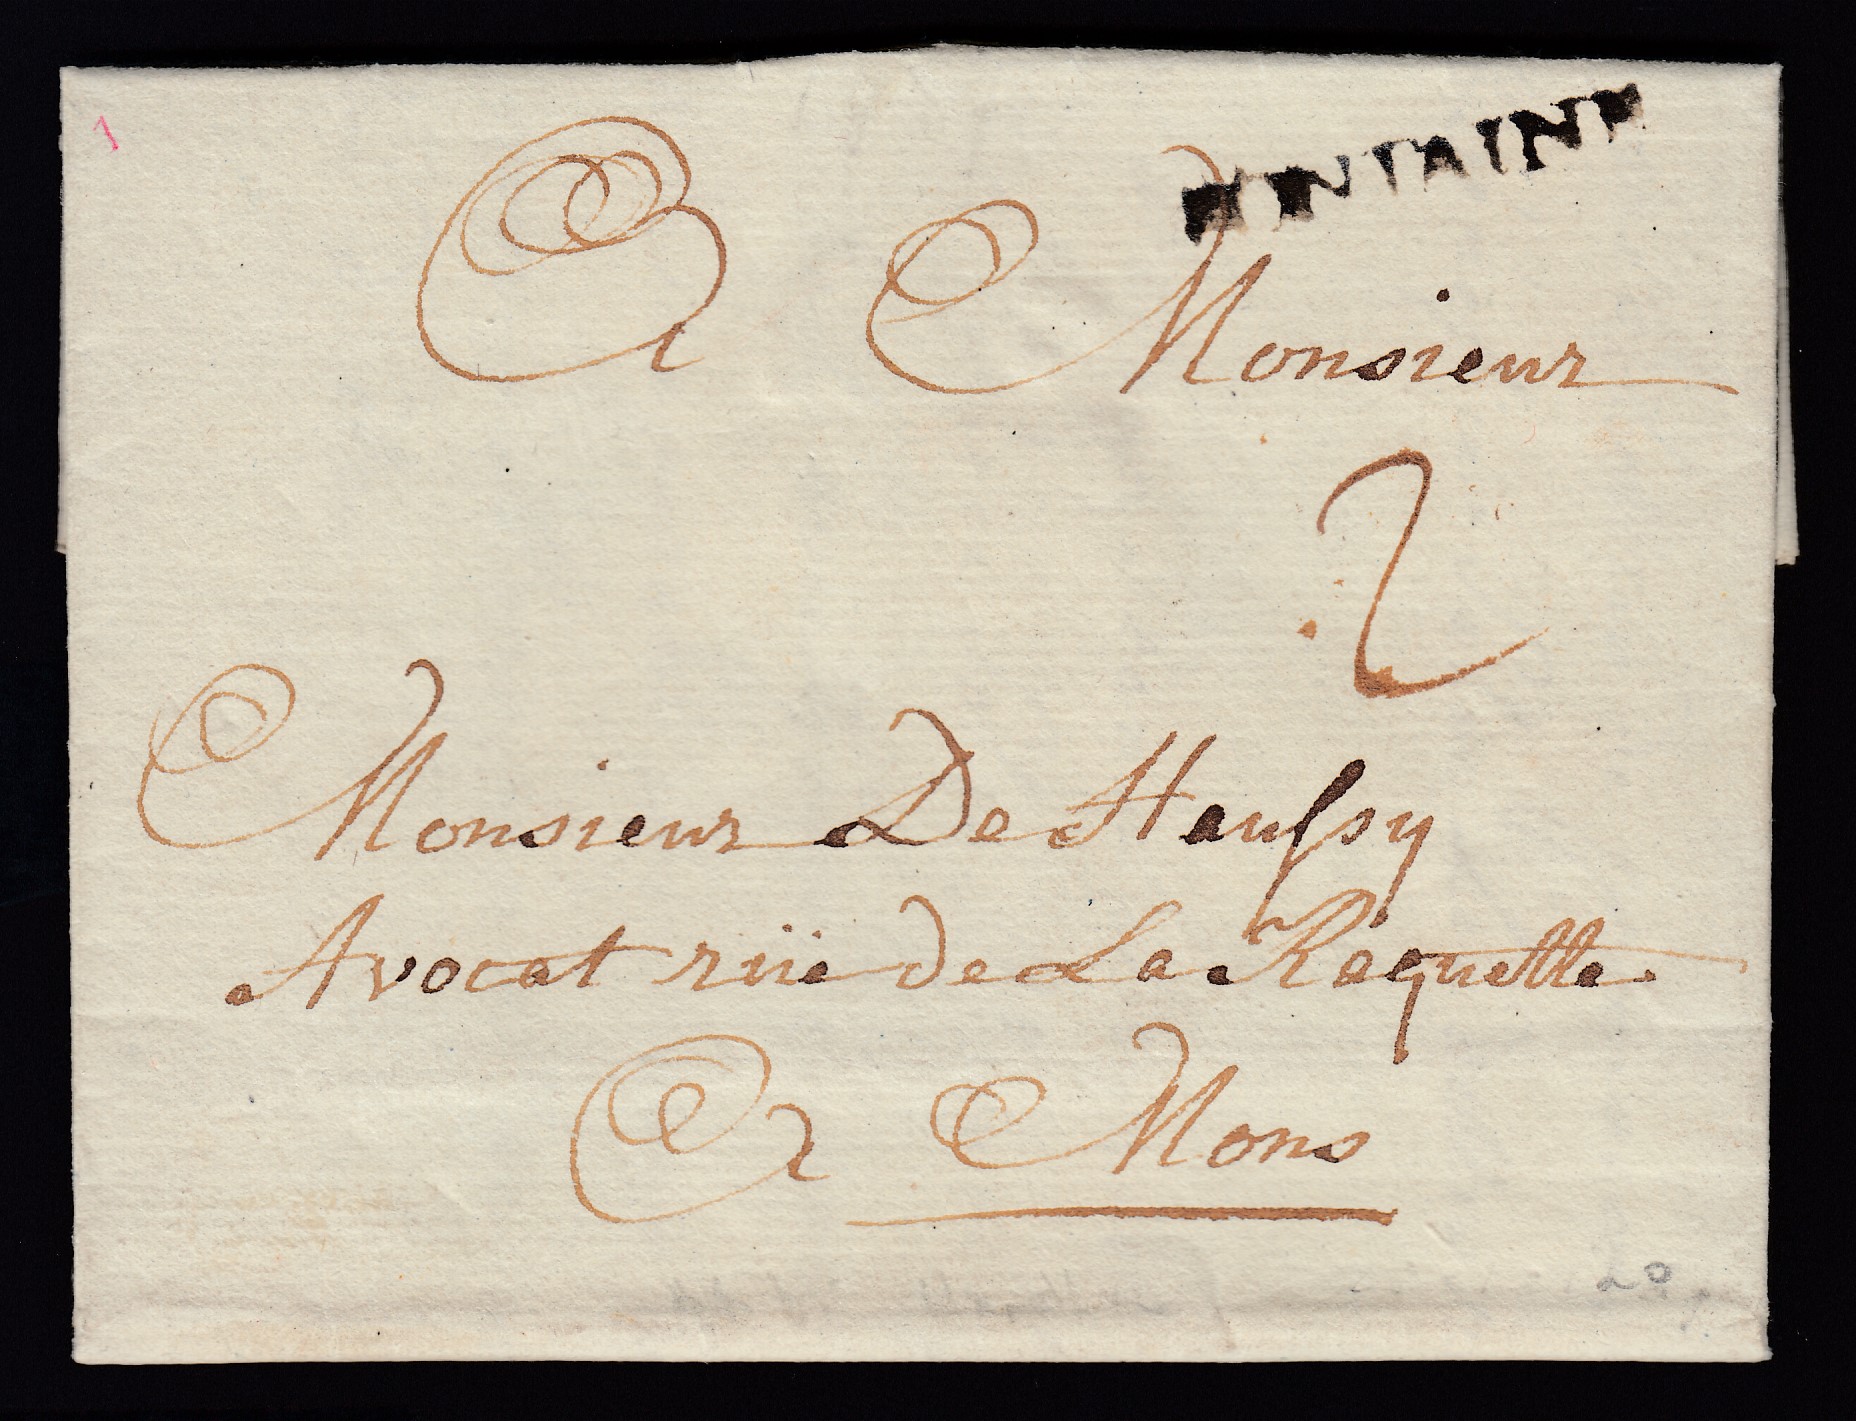 FONTAINE
A Monsieur
2
Monsieur De Heussy
Avocat rüe de La Raquette
A Mons
20